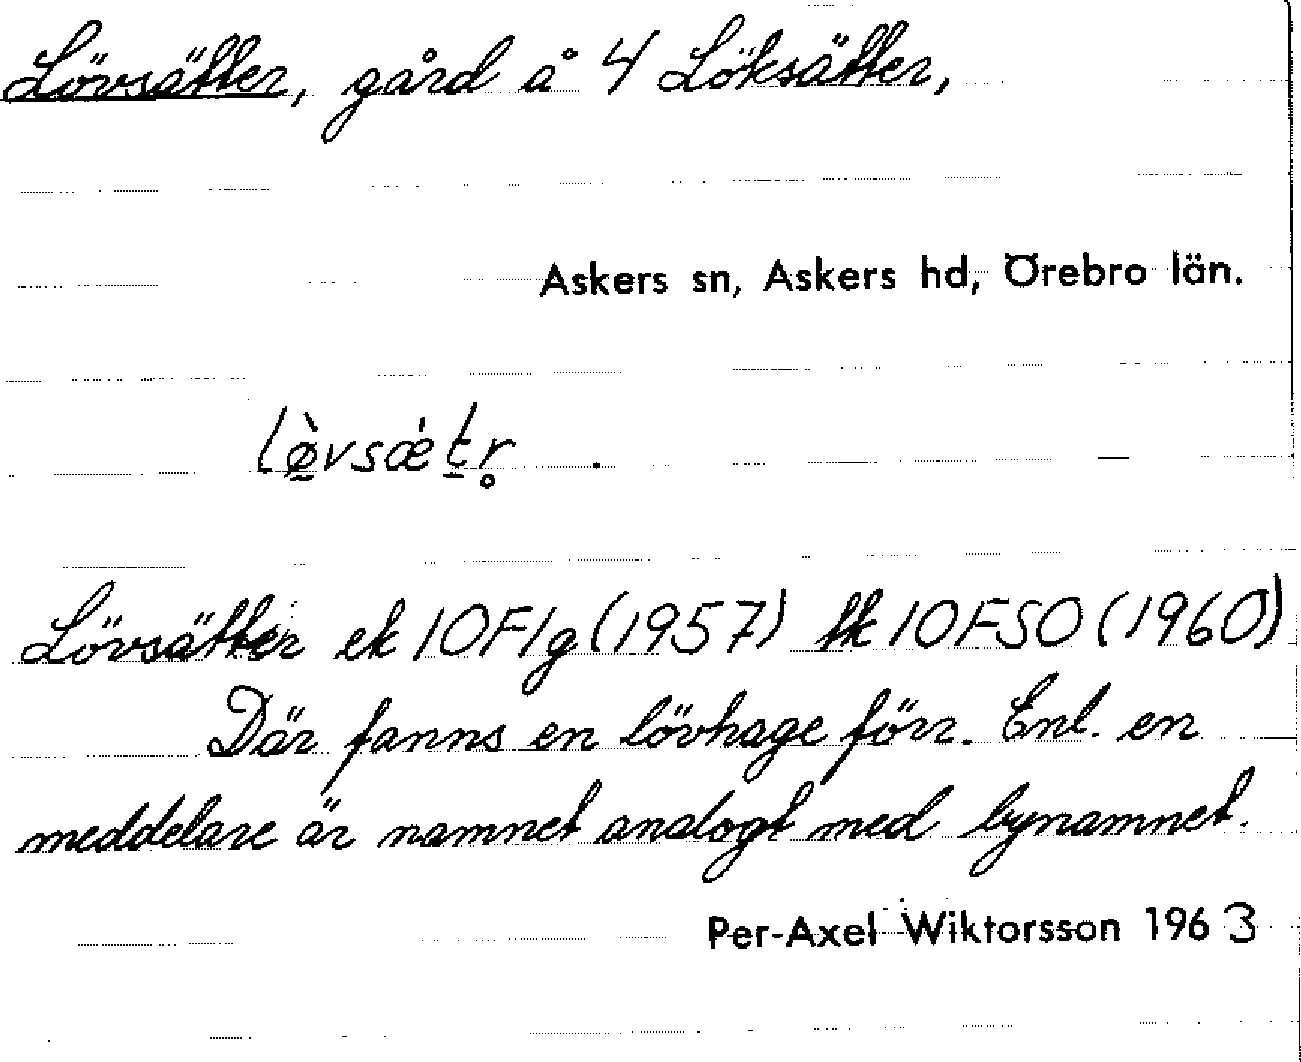 Lövsätter, gård å 4 Löksätter,
Askers sn, Askers hd, Örebro län.
lø̠̀vsǽt̠r̥ .
Lövsätter ek 10F1g (1957) tk 10FSO (1960)
Där fanns en lövhage förr. Enl. en
meddelare är namnet analogt med bynamnet.
Per-Axel Wiktorsson 1963